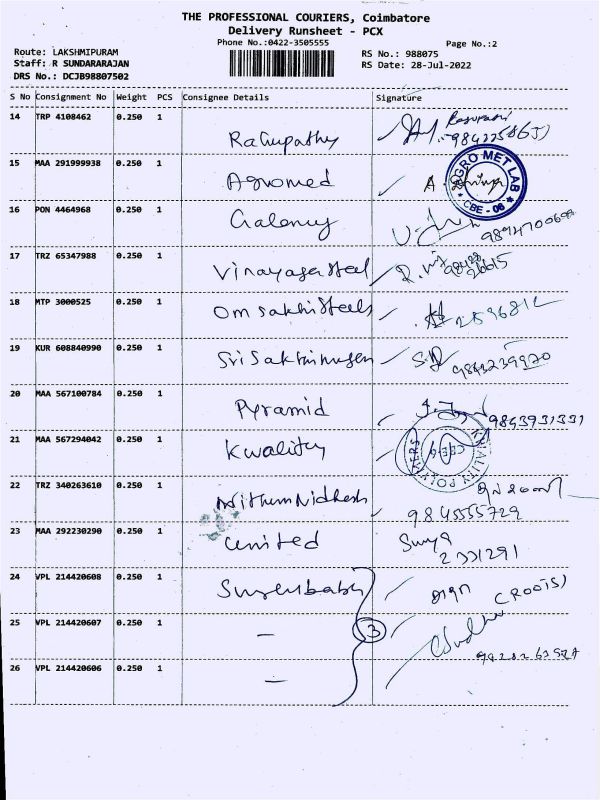 THE PROFESSIONAL COURIERS, Coimbatore
Delivery Runsheet - PCX
Phone No.:0422-3505555
Page No.:2
Route: LAKSHMIPURAM
RS No.: 988075
Staff: R SUNDARARAJAN
RS Date: 28-Jul-2022
DRS No.: DCJB98807502
S No Consignment No Weight PCS Consignee Details Signature
14 TRP 4108462 0.250 1
Ragupathy
15 MAA 291999938 0.250 1
Agromed
AGRO MET LAB
* CBE - 06 *
16 PON 4464968 0.250 1
Galaxy
17 TRZ 65347988 0.250 1
Vinayaga steel
18 MTP 3000525 0.250 1
Om sakthi steels
2596812
19 KUR 608840990 0.250 1
Sri Sakthimurugan
20 MAA 567100784 0.250 1
Pyramid
9843931331
21 MAA 567294042 0.250 1
Kwality
KWALITY POLYMERS
22 TRZ 340263610 0.250 1
Nithun Nidhesh
9845555729
23 MAA 292230290 0.250 1
united
Surya
24 VPL 214420608 0.250 1
Sureshbabu
(ROOTS)
25 VPL 214420607 0.250 1
—
3
26 VPL 214420606 0.250 1
—